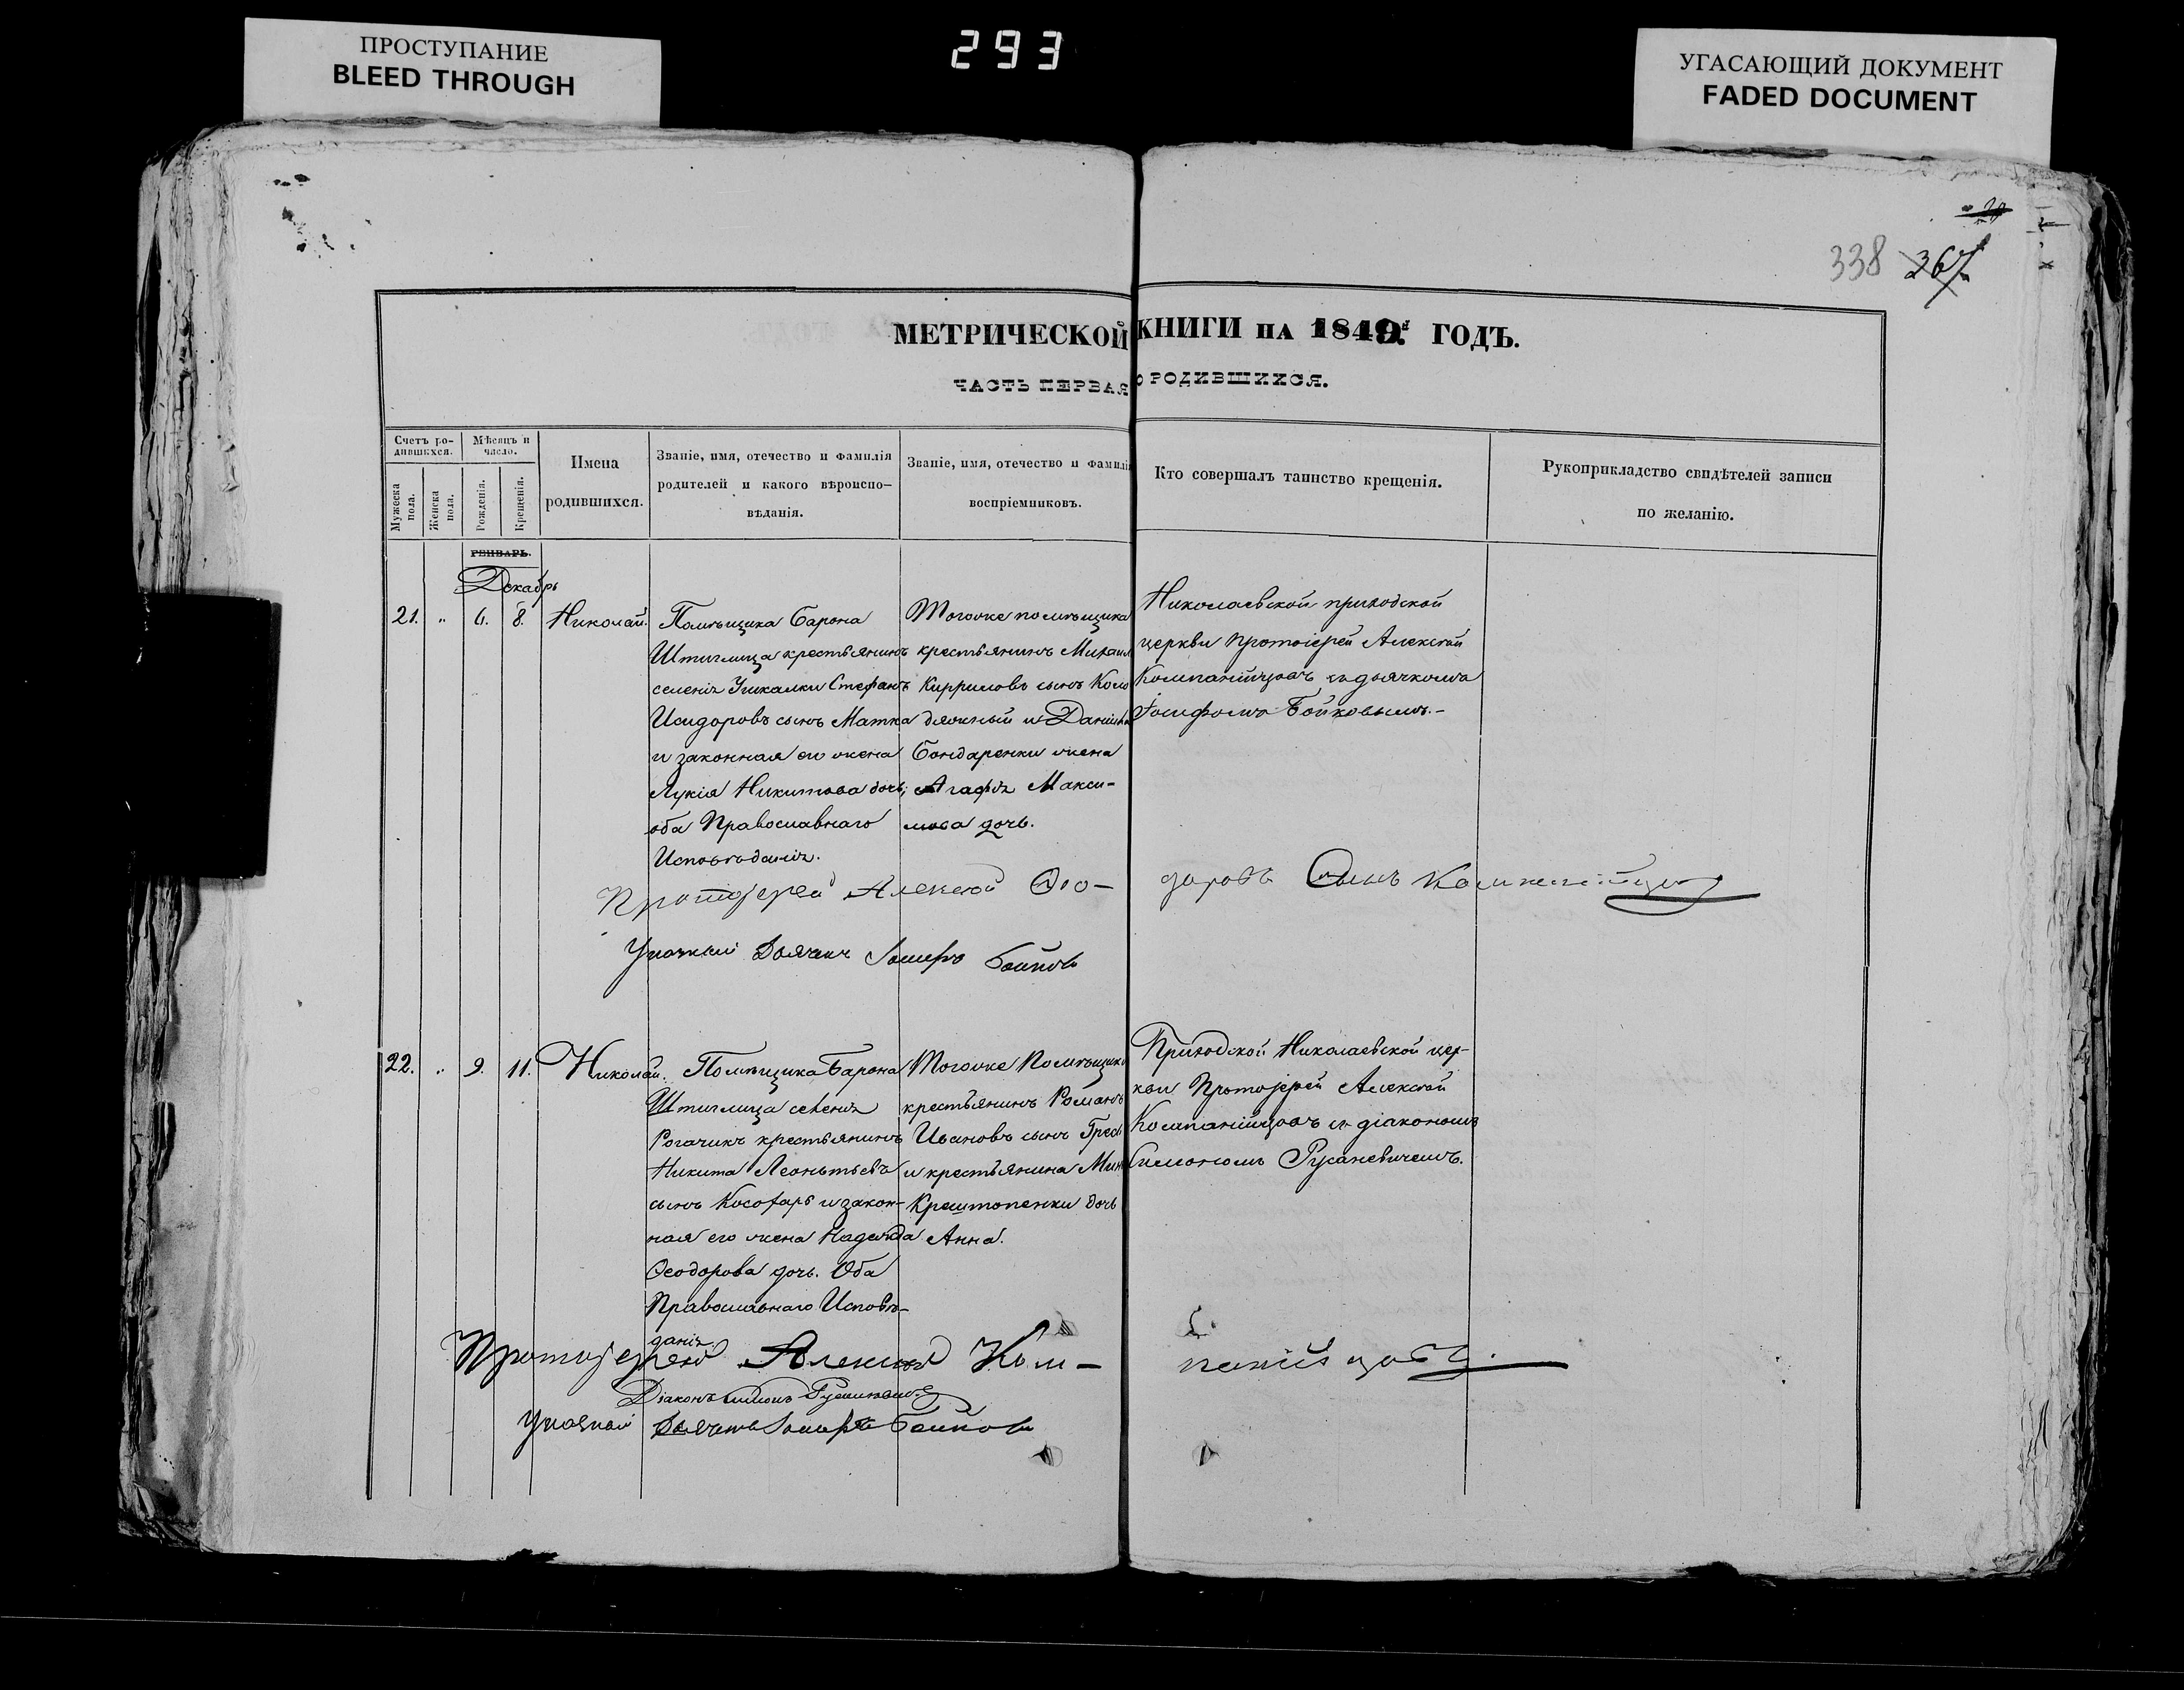 ПРОСТУПАНИЕ
BLEED THROUGH
293
УГАСАЮЩИЙ ДОКУМЕНТ
FADED DOCUMENT
338 367
МЕТРИЧЕСКОЙ КНИГИ НА 1849. ГОДЪ.
ЧАСТЬ ПЕРВАЯ О РОДИВШИХСЯ.
Счетъ ро-
дившихся.
Мужеска
пола.
Женска
пола.
Мѣсяцъ и
число.
Рожденія.
Крещенія.
Имена
родившихся.
Званіе, имя, отечество и фамилія
родителей и какого вѣроиспо-
вѣданія.
Званіе, имя, отечество и фамилі
воспріемниковъ.
Кто совершалъ таинство крещенія.
Рукоприкладство свидѣтелей записи
по желанію.
ГЕНВАРЬ.
Декабрь
21. " 6. 8. Николай.
Помѣщика Барона
Штиглица крестьянинъ
селенія Учкалки Стефанъ
Исидоровъ сынъ Матка
и законная его жена
Лукія Никитова дочь,
оба Православнаго
Исповѣданія.
Тогоже помѣщика
крестьянинъ Михаил
Кирриловъ сынъ Коло
дяжный и Даніила
Бондаренки жена
Агафія Макси-
мова дочь.
Николаевской приходской
церкви Протоіерей Алексѣй
Компанійцовъ съ дьячкомъ
Іосифомъ Бойковымъ.-
Протоіерей Алексѣй Ѳео-
доровъ Сынъ Компанійцовъ
Указный Дьячекъ Іосифъ Бойковъ
22. " 9. 11. Николай.
Помѣщика Барона
Штиглица селенія
Рогачикъ крестьянинъ
Никита Леонтьевъ
сынъ Косогаръ и закон-
ная его жена Надежда
Ѳеодорова дочь. Оба
Православнаго Исповѣ-
данія.
Тогоже Помѣщика
крестьянинъ Романъ
Ивановъ сынъ
и крестьянина
дочь
Анна.
Приходской Николаевской цер-
кви Протоіерей Алексѣй
Компанійцовъ съ діакономъ
Симономъ Русаневичемъ.
Протоіерей Алексѣй Ком-
панійцовъ.
Діаконъ Симонъ Русаневичъ
Указный Дьячекъ Іосифъ Бойковъ